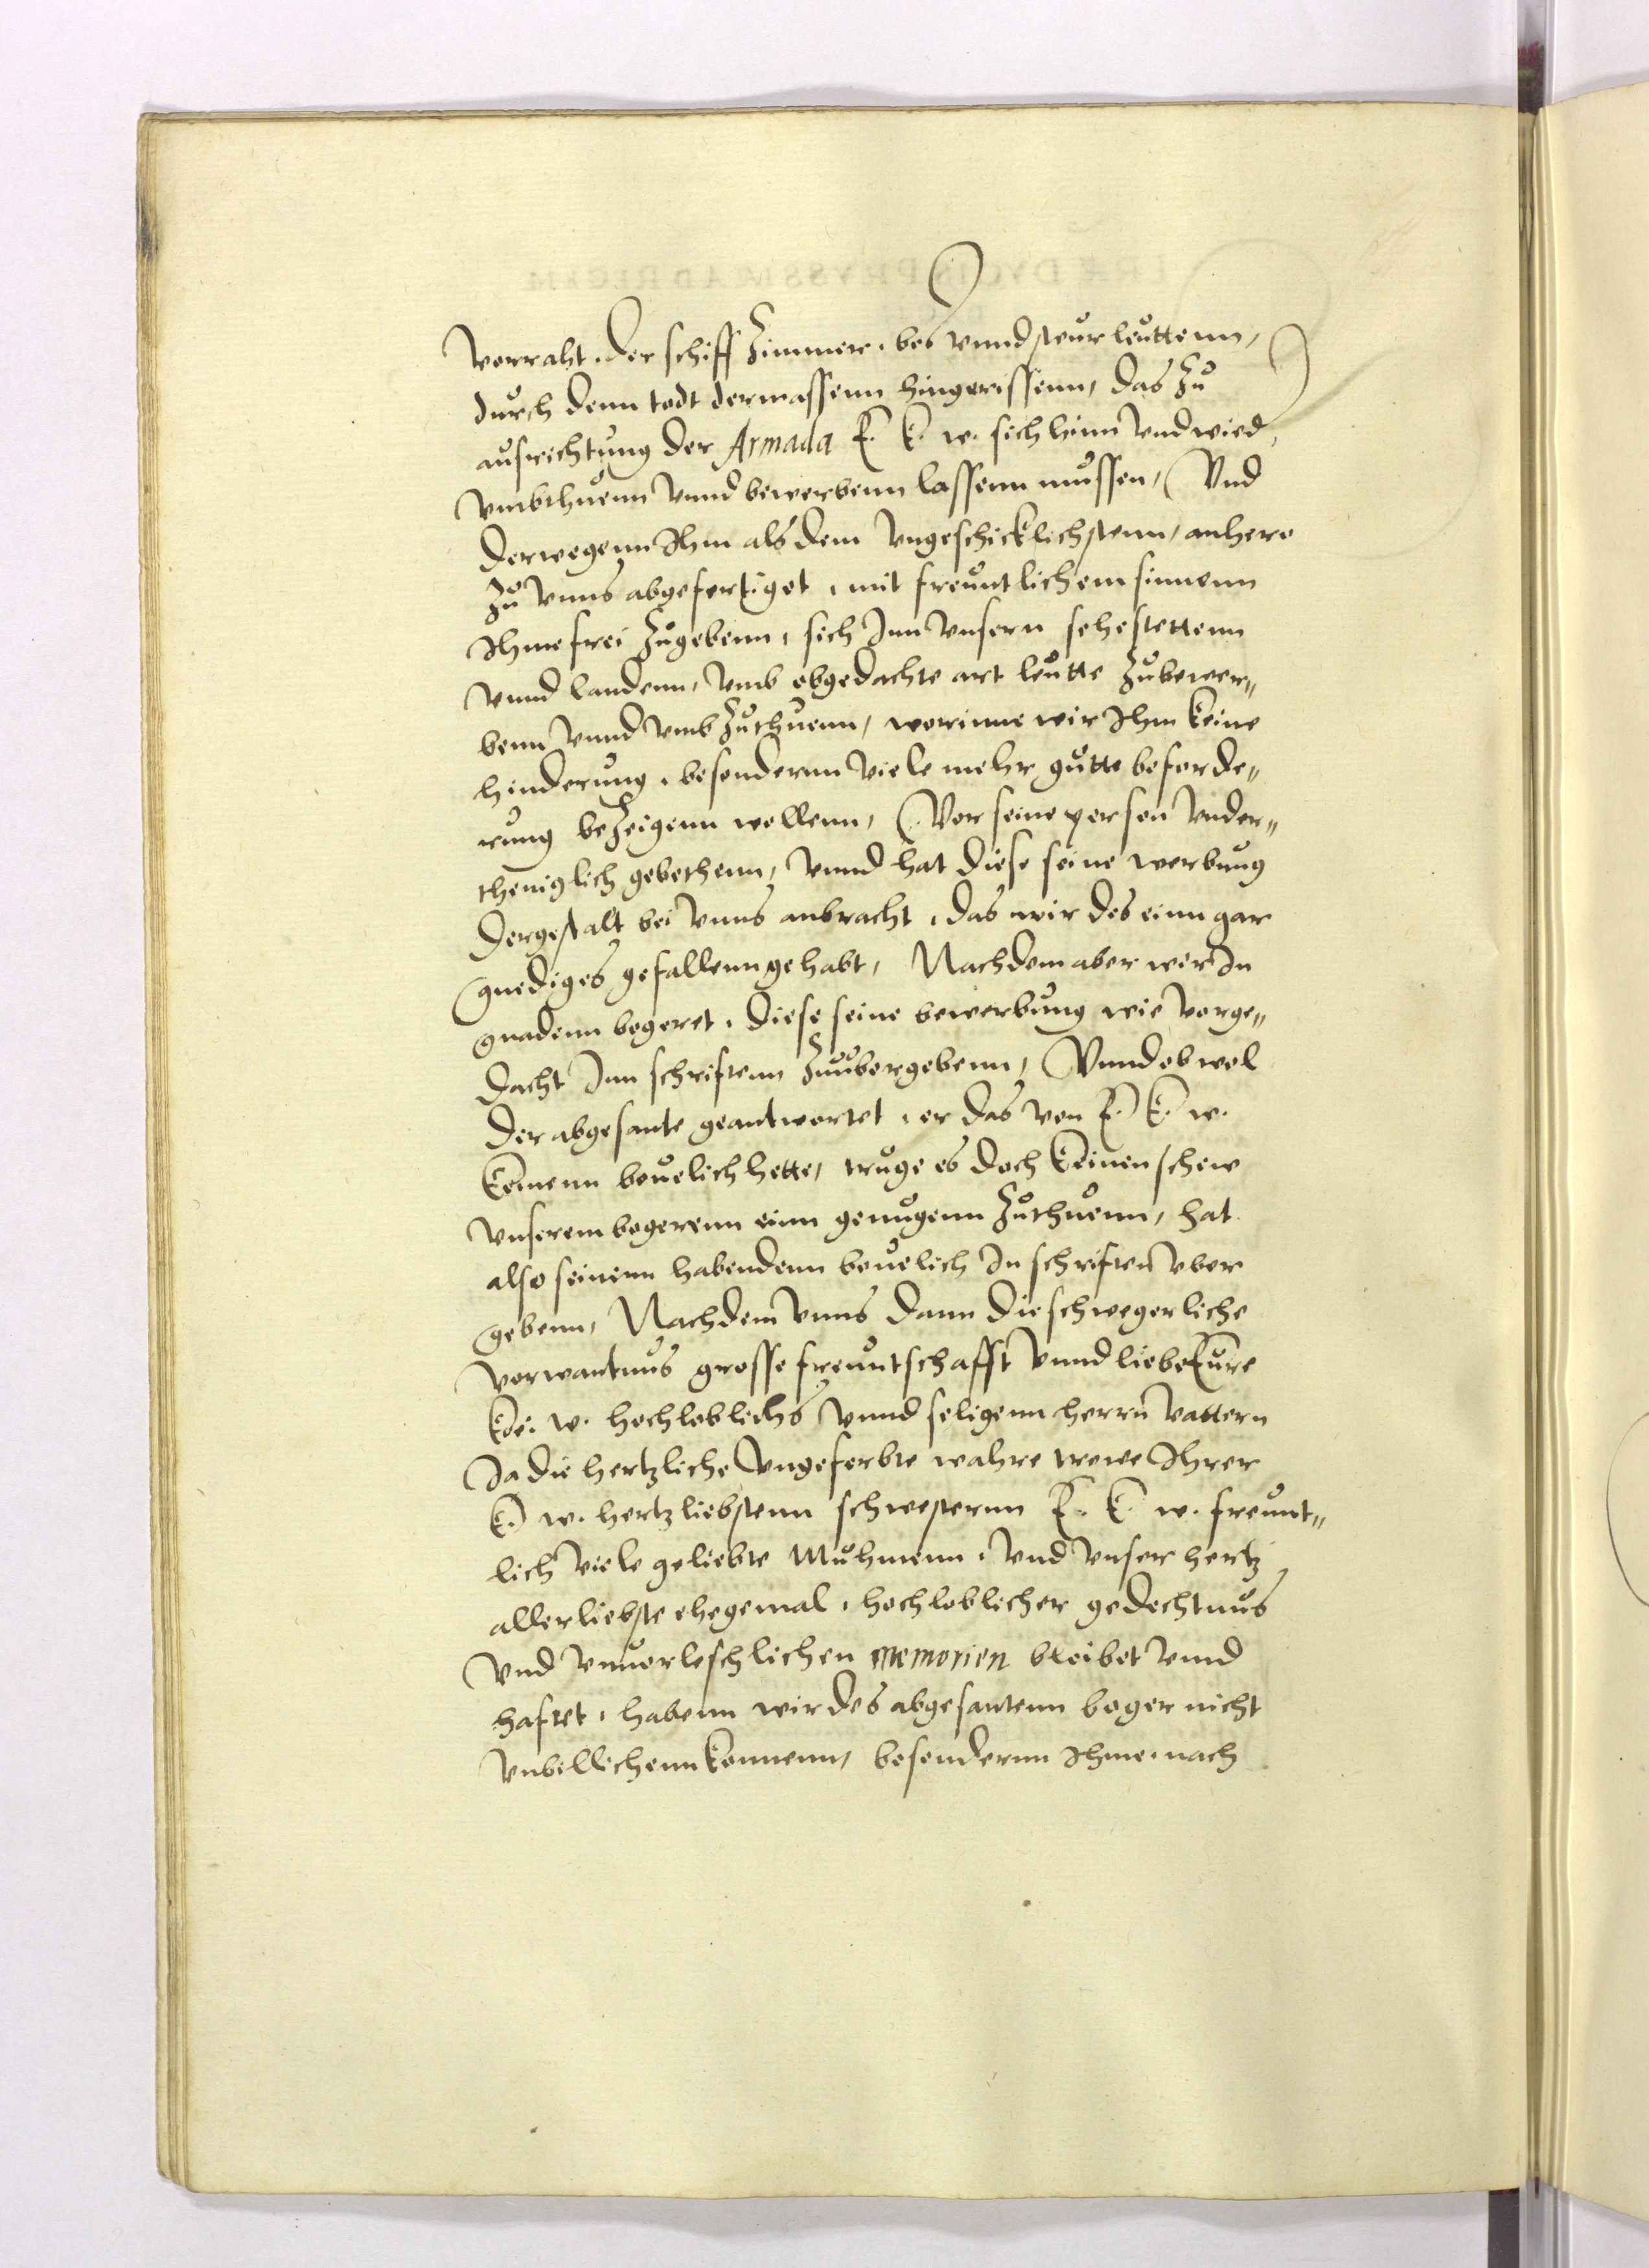 vorraht, der schiff Zimmer, bos vnnd steur leuttenn,
durch denn todt dermassenn hingerissenn, das Zu
ausrichtung der Armada E. K. w. sich hinn vnd wied
vmbthuenn vnnd bewerbenn lassenn mussen, Vnd
derwegenn Ihm als dem vngeschicklichstenn, anhero
Zu vnns abgefertiget, mit freuntlichem sinnenn
Ihme frei Zugebenn, sich Inn vnsern sehestettenn
vnnd landenn, vmb obgedachte art leutte Zubewer„
benn vnnd vmb Zuthuenn, worinne wir Ihm keine
hinderung, besondernn viele mehr gutte beforde„
rung beZeigenn wollenn, Vor seine person vnder„
theniglich gebethenn, vnnd hat diese seine werbung
dergestalt bei vnns anbracht, das wir des einn gar
gnediges gefallenn gehabt, Nachdem aber wir In
gnadenn begeret, diese seine bewerbung wie vorge„
dacht Inn schriftenn Zuubergebenn, Vnnd ob wol
der abgesante geantwortet, er das von E. K. w.
keinenn beuelich hette, truge es doch keinen schew
vnserem begerenn einn genugenn Zuthuenn, hat
also seinenn habendenn beuelich In schriften vber
gebenn, Nachdem vnns dann die schwegerliche
vorwantnus grosse freuntschafft vnnd liebe Eure
Ko: w. hochloblichs vnnd seligenn herrn vattern
Ja die hertzliche vngeferbte wahre trewe Ihrer
K. w. hertzliebstenn schwesternn E. K. w. freunt„
lich viele geliebte Muhmenn, vnd vnser hertz
allerliebste ehegemal, hochloblicher gedechtnus
vnd vnuorleschlichen memorien bleibet vnnd
haftet, habenn wir des abgesantenn beger nicht
vnbillichenn konnenn, besondernn Ihme nach